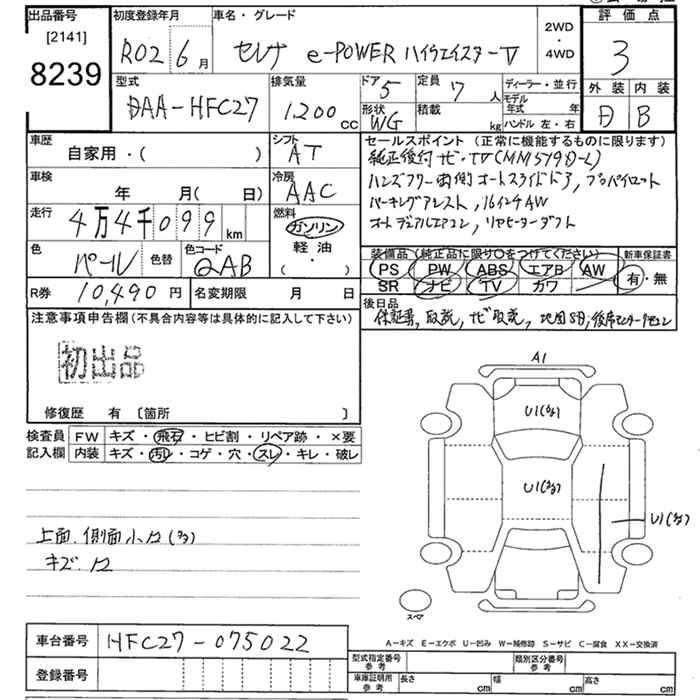 出品番号
[2141]
8239
初度登録年月
R02 6月
車名・グレード
セレナ e-POWER ハイウェイスターV
2WD
・
4WD
評価点
3
外装 内装
D B
型式
DAA-HFC27
排気量
1200cc
ドア 5
定員 7人
形状 WG
積載 kg
ディーラー・並行
モデル年式 年
ハンドル 左・右
車歴
自家用・( )
シフト
AT
車検
年 月( 日)
冷房
AAC
走行
4万4千099km
燃料
ガソリン
軽油
( ・ )
色
パール
色替
色コード
QAB
R券 10,490円
名変期限 月 日
セールスポイント (正常に機能するものに限ります)
純正後付ナビ・TV(MM519D-L)
ハンズフリー両側オートスライドドア, プロパイロット
パーキングアシスト, 16インチAW
オートデュアルエアコン, リヤヒーターダクト
装備品(純正品に限り○をつけてください)
新車保証書
PS PW ABS エアB AW
SR ナビ TV カワ
有・無
後日品
保証書, 取説, ナビ取説,
注意事項申告欄(不具合内容等は具体的に記入して下さい)
初出品
修復歴 有 〔箇所 〕
検査員記入欄
FW キズ・飛石・ヒビ割・リペア跡・×要
内装 キズ・汚レ・コゲ・穴・スレ・キレ・破レ
上面. 側面小凹(多)
キズ. 凹
A1
U1(多)
U1(多)
U1(多)
スペア
A-キズ E-エクボ U-凹み W-補修跡 S-サビ C-腐食 XX-交換済
車台番号 HFC27-075022
登録番号
型式指定番号 参考
類別区分番号 参考
車庫証明 参考
長さ cm
幅 cm
高さ cm